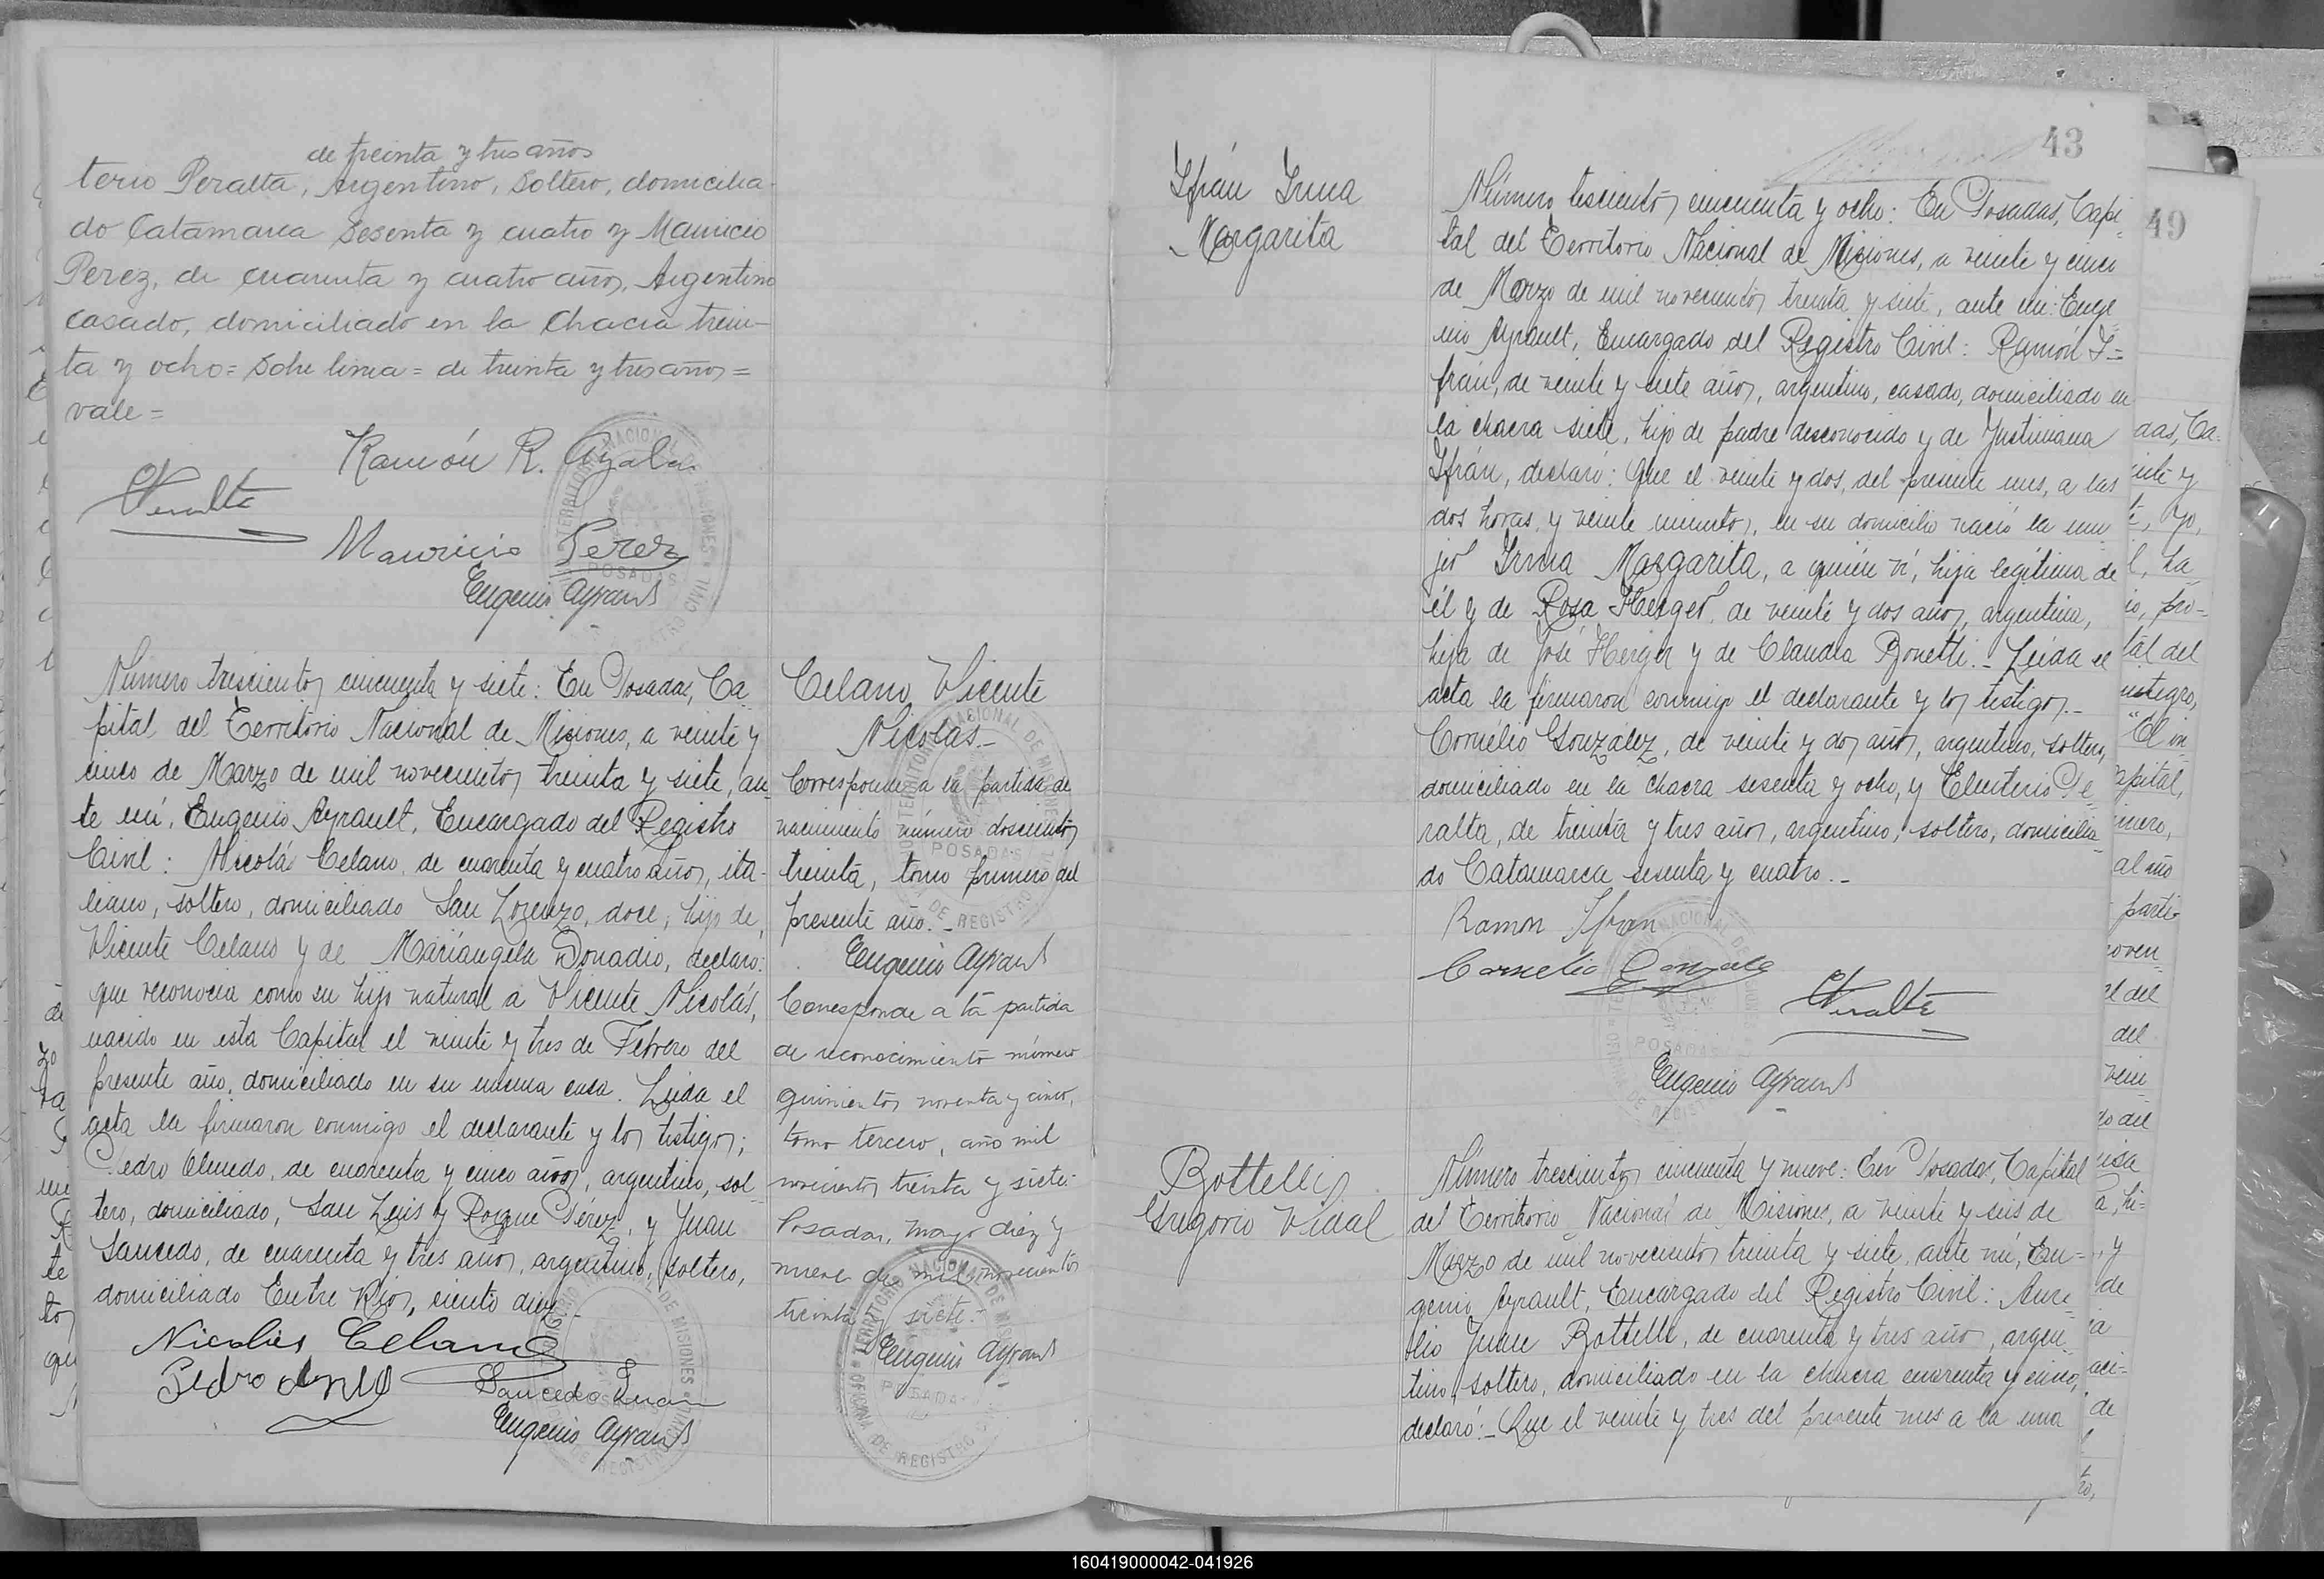 de treinta y tres años
terio Peralta, Argentino, soltero, domicilia-
do Catamarca sesenta y cuatro y Mauricio
Perez, de cuarenta y cuatro años, Argentino
casado, domiciliado en la Chacra trein-
ta y ocho = Sobre linea = de treinta y tres años =
vale =
Ramón R. Ayala
Peralta
Mauricio Perez
Eugenio Ayrault
Número trescientos cincuenta y siete: En Posadas, Ca-
pital del Territorio Nacional de Misiones, a veinte y
cinco de Marzo de mil novecientos treinta y siete, an-
te mí, Eugenio Ayrault, Encargado del Registro
Civil: Nicolás Celano, de cuarenta y cuatro años, ita-
liano, soltero, domiciliado San Lorenzo, doce, hijo de
Vicente Celano y de Mariángela Donadio, declaró:
que reconocia como su hijo natural a Vicente Nicolás,
nacido en esta Capital el veinte y tres de Febrero del
presente año, domiciliado en su misma casa. Leida el
acta la firmaron conmigo el declarante y los testigos;
Pedro Olmedo, de cuarenta y cinco años, argentino, sol-
tero, domiciliado, San Luis y Roque Pérez, y Juan
Saucedo, de cuarenta y tres años, argentino, soltero,
domiciliado Entre Rios, ciento diez.-
Nicolás Celano
Pedro
Saucedo Juan
Eugenio Ayrault
Celano Vicente
Nicolás.-
Corresponde a la partida de
nacimiento número doscientos
treinta, tomo primero del
presente año.-
Eugenio Ayrault
Corresponde a la partida
de reconocimiento número
quinientos noventa y cinco,
tomo tercero, año mil
novecientos treinta y siete.-
Posadas, mayo diez y
nueve de mil novecientos
treinta y siete.-
Eugenio Ayrault
43
Ifrán Irma
Margarita
Número trescientos cincuenta y ocho: En Posadas, Capi-
tal del Territorio Nacional de Misiones, a veinte y cinco
de Marzo de mil novecientos treinta y siete, ante mí: Euge-
nio Ayrault, Encargado del Registro Civil: Ramón I=
frán, de veinte y siete años, argentino, casado, domiciliado en
la chacra siete, hijo de padre desconocido y de Justiniana
Ifrán, declaró: Que el veinte y dos, del presente mes, a las
dos horas y veinte minutos, en su domicilio nació la mu-
jer Irma Margarita, a quién ví, hija legítima de
él y de Rosa Herger, de veinte y dos años, argentina,
hija de José Herger y de Claudia Bonetti.- Leida el
acta la firmaron conmigo el declarante y los testigos.-
Cornélio González, de veinte y dos años, argentino, soltero,
domiciliado en la chacra sesenta y ocho, y Eleuterio Pe-
ralta, de treinta y tres años, argentino, soltero, domicilia-
do Catamarca sesenta y cuatro.-
Ramon Ifran
Cornelio Gonzalez
Peralta
Eugenio Ayrault
Bottelli
Gregorio Vidal
Número trescientos cincuenta y nueve: En Posadas, Capital
del Territorio Nacional de Misiones, a veinte y seis de
Marzo de mil novecientos treinta y siete, ante mí, Eu=
genio Ayrault, Encargado del Registro Civil: Aure-
lio Juan Bottelli, de cuarenta y tres años, argen-
tino, soltero, domiciliado en la chacra cuarenta y cinco,
declaró:- Que el veinte y tres del presente mes a la una
49
160419000042-041926